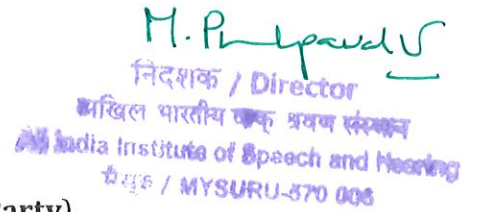 निदेशक / Director
अखिल भारतीय वाक् श्रवण संस्थान
All India Institute of Speech and Hearing
/ MYSURU-570 006
Party)